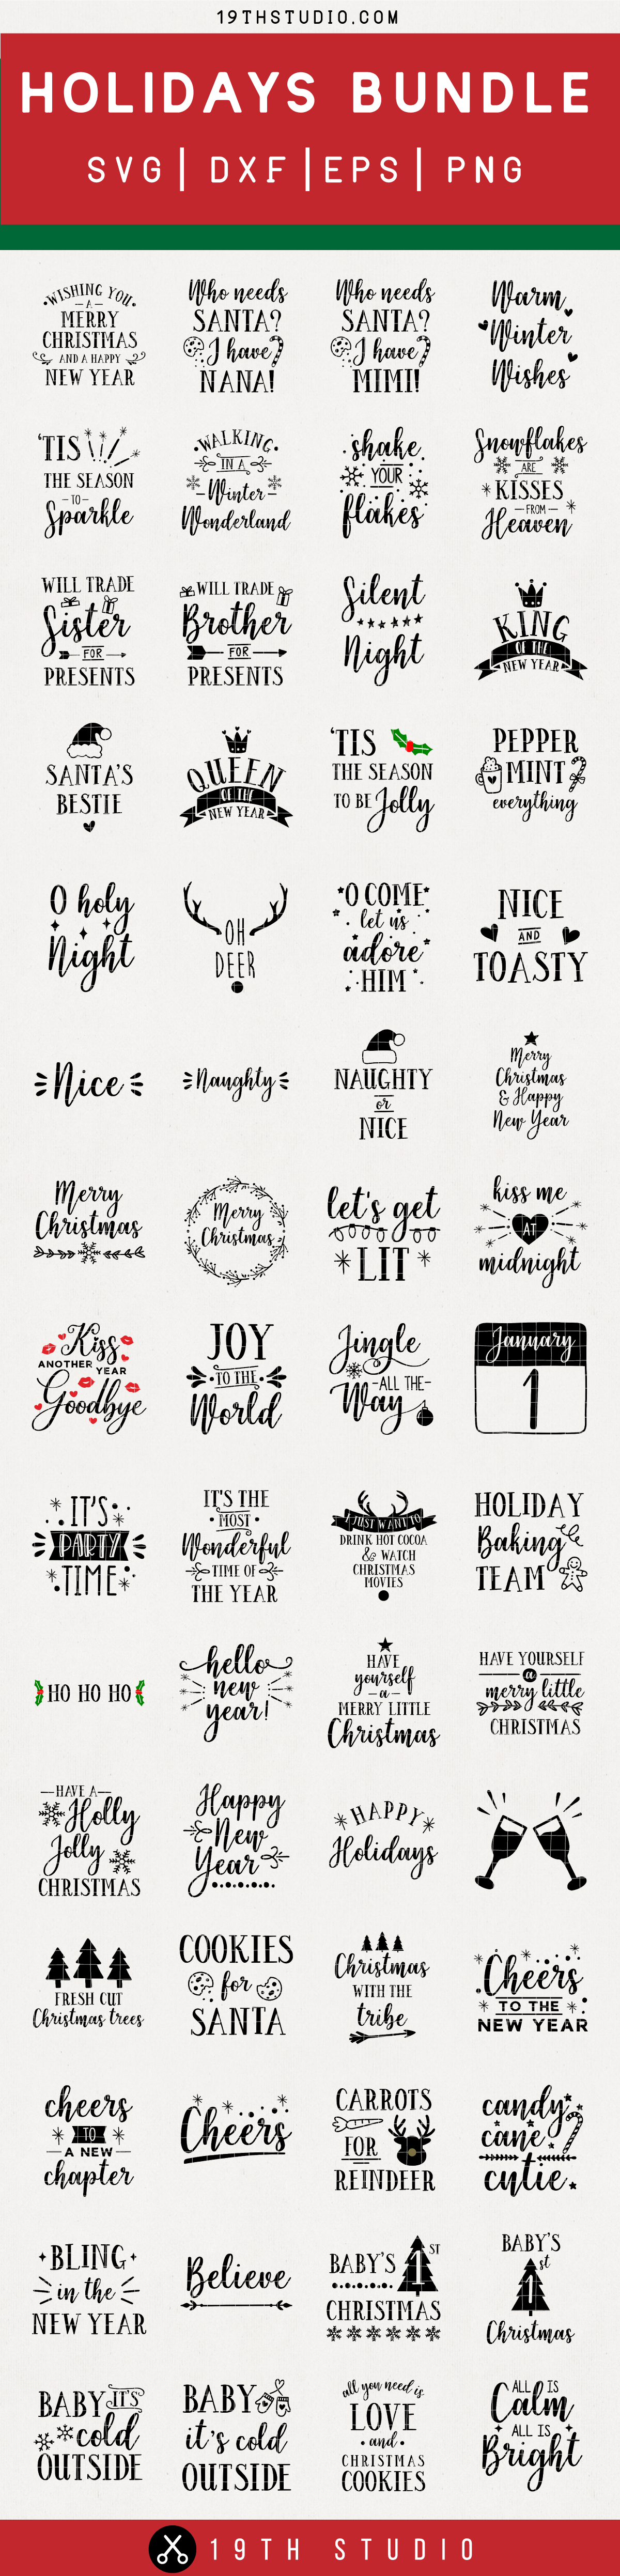 19THSTUDIO.COM
HOLIDAYS BUNDLE
SVG| DXF |EPS| PNG
WISHING YOU
A
MERRY
CHRISTMAS
AND A HAPPY
NEW YEAR
Who needs
SANTA?
I have
NANA!
Who needs
SANTA?
I have
MIMI!
Warm
Winter
Wishes
'TIS
THE SEASON
TO
Sparkle
WALKING
IN A
Winter
Wonderland
shake
YOUR
flakes
Snowflakes
ARE
KISSES
FROM
Heaven
WILL TRADE
Sister
FOR
PRESENTS
WILL TRADE
Brother
FOR
PRESENTS
Silent
Night
KING
OF THE
NEW YEAR
SANTA'S
BESTIE
QUEEN
OF THE
NEW YEAR
'TIS
THE SEASON
TO BE Jolly
PEPPER
MINT
everything
O holy
Night
OH
DEER
O COME
let us
adore
HIM
NICE
AND
TOASTY
Nice
Naughty
NAUGHTY
or
NICE
Merry
Christmas
& Happy
New Year
Merry
Christmas
Merry
Christmas
let's get
LIT
kiss me
AT
midnight
Kiss
ANOTHER YEAR
Goodbye
JOY
TO THE
World
Jingle
-ALL THE-
Way
January
1
IT'S
PARTY
TIME
IT'S THE
MOST
Wonderful
TIME OF
THE YEAR
I JUST WANT TO
DRINK HOT COCOA
& WATCH
CHRISTMAS
MOVIES
HOLIDAY
Baking
TEAM
HO HO HO
hello
new
year!
HAVE
yourself
-a-
MERRY LITTLE
Christmas
HAVE YOURSELF
a
merry little
CHRISTMAS
HAVE A
Holly
Jolly
CHRISTMAS
Happy
New
Year
HAPPY
Holidays
FRESH CUT
Christmas trees
COOKIES
for
SANTA
Christmas
WITH THE
tribe
Cheers
TO THE
NEW YEAR
cheers
TO
A NEW
chapter
Cheers
CARROTS
FOR
REINDEER
candy
cane
cutie
BLING
in the
NEW YEAR
Believe
BABY'S 1ST
CHRISTMAS
BABY'S
1st
Christmas
BABY IT'S
cold
OUTSIDE
BABY
it's cold
OUTSIDE
all you need is
LOVE
and
CHRISTMAS
COOKIES
ALL IS
Calm
ALL IS
Bright
19TH STUDIO